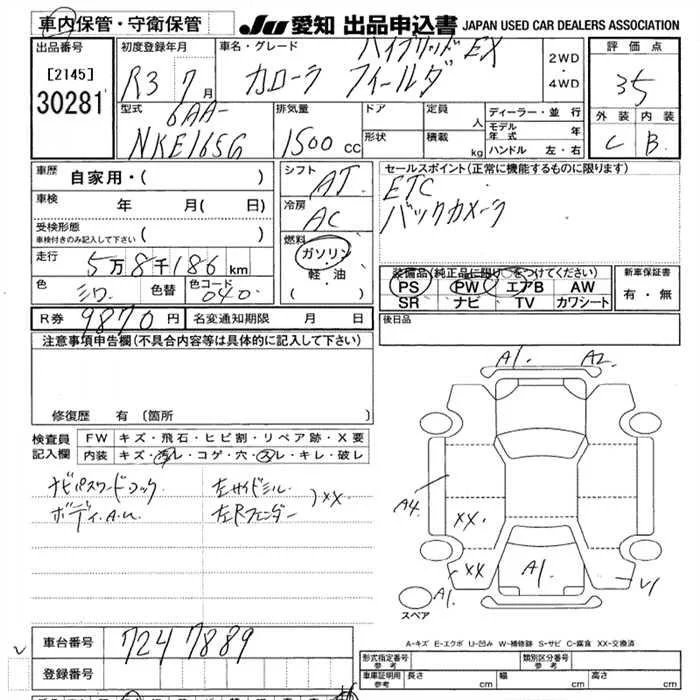 車内保管・守衛保管 JU 愛知 出品申込書 JAPAN USED CAR DEALERS ASSOCIATION
出品番号 初度登録年月 車名・グレード ハイブリッドEX 2WD・4WD 評価点
[2145] R3 7月 カローラ フィールダ 35
30281 型式 6AA- 排気量 ドア 定員 人 ディーラー・並行 外装 内装
NKE165G 1500cc 形状 積載 kg モデル年式 年 C B
ハンドル 左・右
車歴 自家用・( ) シフト AT セールスポイント(正常に機能するものに限ります)
車検 年 月( 日) 冷房 AC ETC
受検形態 バックカメラ
車検付きのみ記入して下さい 燃料
走行 5万8千186km ガソリン・軽・油 ( ) 装備品(純正品に限り○をつけてください) 新車保証書
色 シロ 色替 色コード 040 PS PW エアB AW 有・無
SR ナビ TV カワシート
R券 9870円 名変通知期限 月 日 後日品
注意事項申告欄(不具合内容等は具体的に記入して下さい)
A1. A2.
修復歴 有 (箇所 )
検査員記入欄 FW キズ・飛石・ヒビ割・リペア跡・X要
内装 キズ・汚レ・コゲ・穴・スレ・キレ・破レ
ナビパスワードロック 左サイドミル
ボディA.U. 左Rフェンダー )XX
A4
XX
XX A1. U1
スペア A1.
A-キズ E-エクボ U-凹み W-補修跡 S-サビ C-腐食 XX-交換済
車台番号 7247889
登録番号 型式指定番号 参考 類別区分番号 参考
車庫証明用 参考 長さ cm 幅 cm 高さ cm